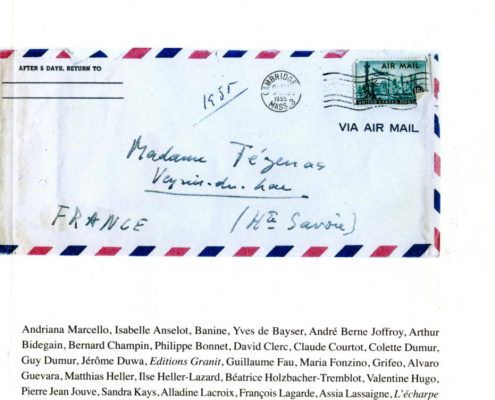 AFTER 5 DAYS, RETURN TO
1955
CAMBRIDGE
1955
MASS.
AIR MAIL
UNITED STATES POSTAGE
VIA AIR MAIL
Madame Tézenas
Veyrier-du-Lac
FRANCE (Hte Savoie)
Andriana Marcello, Isabelle Anselot, Banine, Yves de Bayser, André Berne Joffroy, Arthur
Bidegain, Bernard Champin, Philippe Bonnet, David Clerc, Claude Courtot, Colette Dumur,
Guy Dumur, Jérôme Duwa, Editions Granit, Guillaume Fau, Maria Fonzino, Grifeo, Alvaro
Guevara, Matthias Heller, Ilse Heller-Lazard, Béatrice Holzbacher-Tremblot, Valentine Hugo,
Pierre Jean Jouve, Sandra Kays, Alladine Lacroix, François Lagarde, Assia Lassaigne, L'écharpe